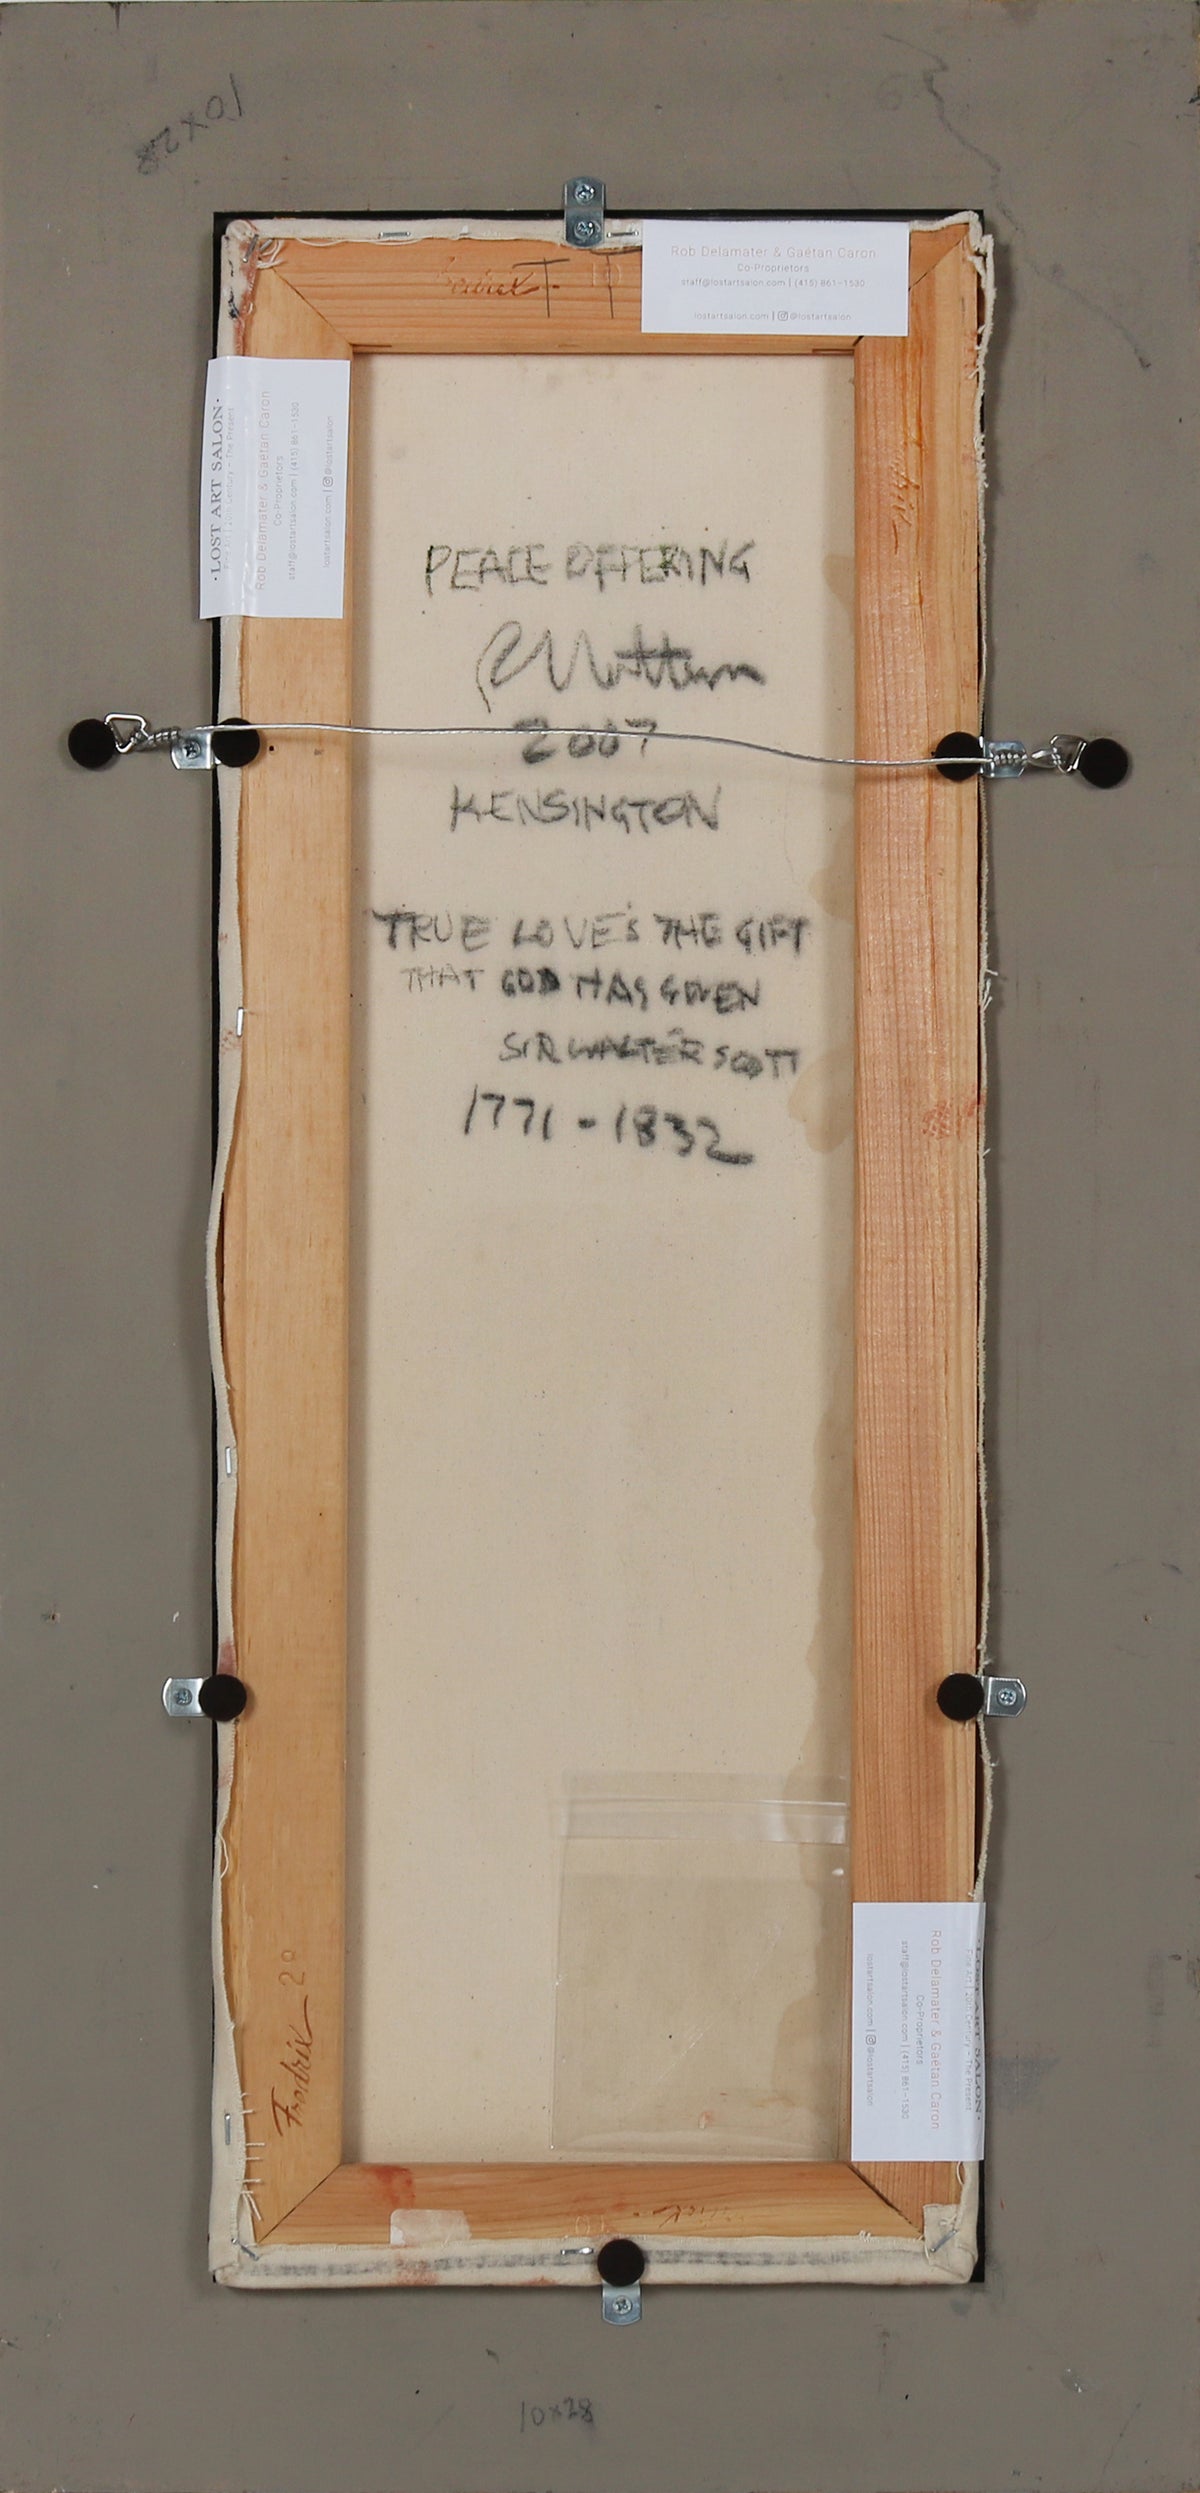 10x28
Rob Delamater & Gaétan Caron
Co-Proprietors
staff@lostartsalon.com | (415) 861-1530
lostartsalon.com | @lostartsalon
Fredrix
10
·LOST ART SALON·
Fine Art | 20th Century – The Present
Rob Delamater & Gaétan Caron
Co-Proprietors
staff@lostartsalon.com | (415) 861-1530
lostartsalon.com | @lostartsalon
PEACE OFFERING
2007
KENSINGTON
TRUE LOVE'S THE GIFT
THAT GOD HAS GIVEN
SIR WALTER SCOTT
1771-1832
Fredrix 28
LOST ART SALON·
Fine Art | 20th Century – The Present
Rob Delamater & Gaétan Caron
Co-Proprietors
staff@lostartsalon.com | (415) 861-1530
lostartsalon.com | @lostartsalon
10x28